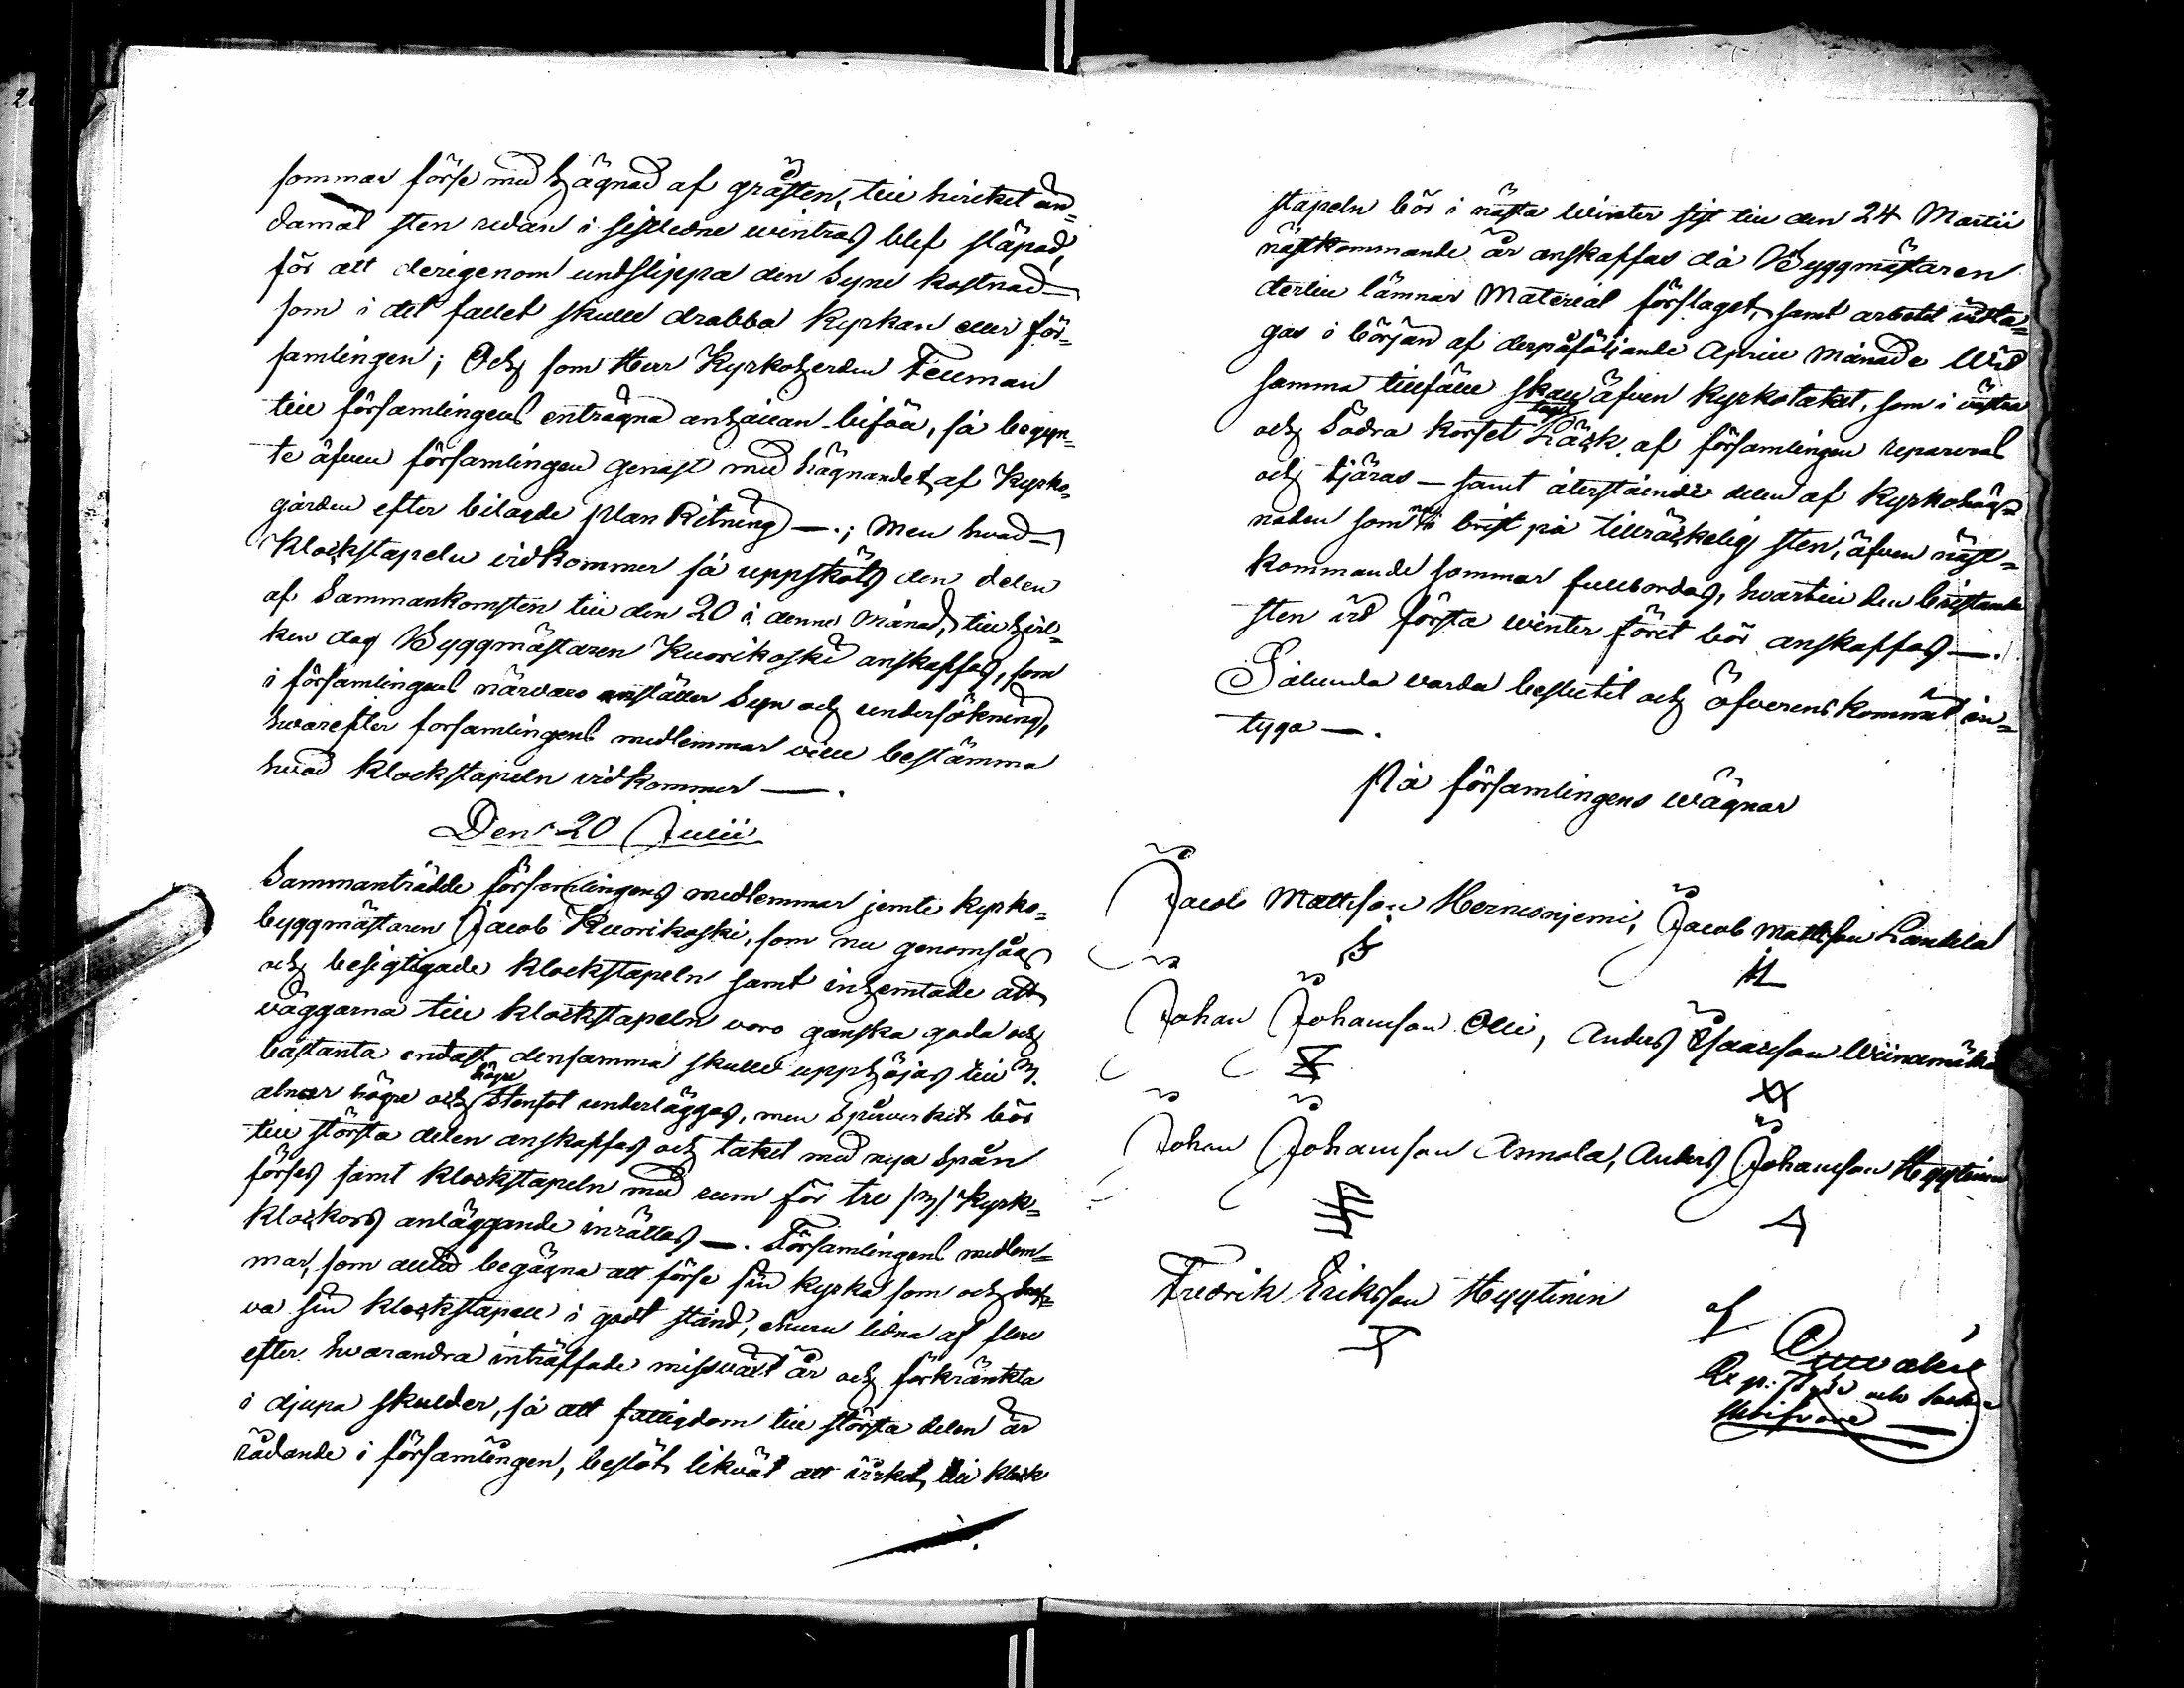 sommar förse med hägnad af gråsten, till hvilket än=
damål sten redan i sistledne wintras blef släpad,
för att derigenom undslippa den Syne kostnad
som i det fallet skulle drabba Kyrkan eller för=
samlingen; Och som Herr Kyrkoherden Fellman
till församlingens enträgna anhållan biföll, så begyn=
te äfven församlingen genast med hägnandet af Kyrko=
gården efter bilagde plan Ritning —.; Men hvad
Klockstapeln vidkommer så uppsköts den delen
af Sammankomsten till den 20 i denne Månad, till hvil=
ken dag Byggmästaren Kuorikoski anskaffas, som
i församlingens närvaro anställer Syn och undersökning,
hvarefter forsamlingens medlemmar ville bestämma
hvad klockstapeln vidkommer —.
Den 20 Julii
Sammanträdde församlingens medlemmar jemte kyrko=
byggmästaren Jacob Kuorikoski, som nu genomsåg
och besigtigade klockstapeln samt inhemtade att
väggarna till klockstapeln voro ganska goda och
bastanta endast densamma skulle upphöjas till 3.
alnar högre och högre Stenfot underläggas, men Spirverket bör
till största delen anskaffas och taket med nya Spån
förses samt klockstapeln med rum för tre /3/ Kyrk=
klockors anläggande inrättas —. Församlingens medlem=
mar, som alltid begägna att förse sin kyrka som och
va sin klockstapell i godt stånd, ehuru lidna af flere
efter hvarandra inträffade missväxt år och förkränkta
i djupa skulder, så att fattigdom till största delen är
rådande i församlingen, beslöt likväl att virket, till klock
stapeln bör i nästa Winter sist till den 24 Martii
nästkommande år anskaffas då Byggmästaren
dertill lämnar Material förslaget, samt arbetet vidta=
gas i början af derpåföljande Aprill Månade Wid
samma tillfälle skall äfven Kyrkotaket, som i västra
och Södra korset läck af församlingen repareras
och tjäras — samt återstående delen af Kyrkohäg
naden som nu i brist på tillräckelig sten, äfven näst=
kommande sommar fullbordas, hvartill den bristande
sten vid första winter föret bör anskaffas —.
Sålunda varda beslutit och öfverenskommit in=
tyga —.
På församlingens wägnar
Jacob Mattsson Hernesnjemi, Jacob Mattsson Landela
Johan Johansson Olli, Anders Isaacsson Wiinamäki
Johan Johansson Annola, Anders Johansson Hyytinen
Fredrik Eriksson Hyytinen
af